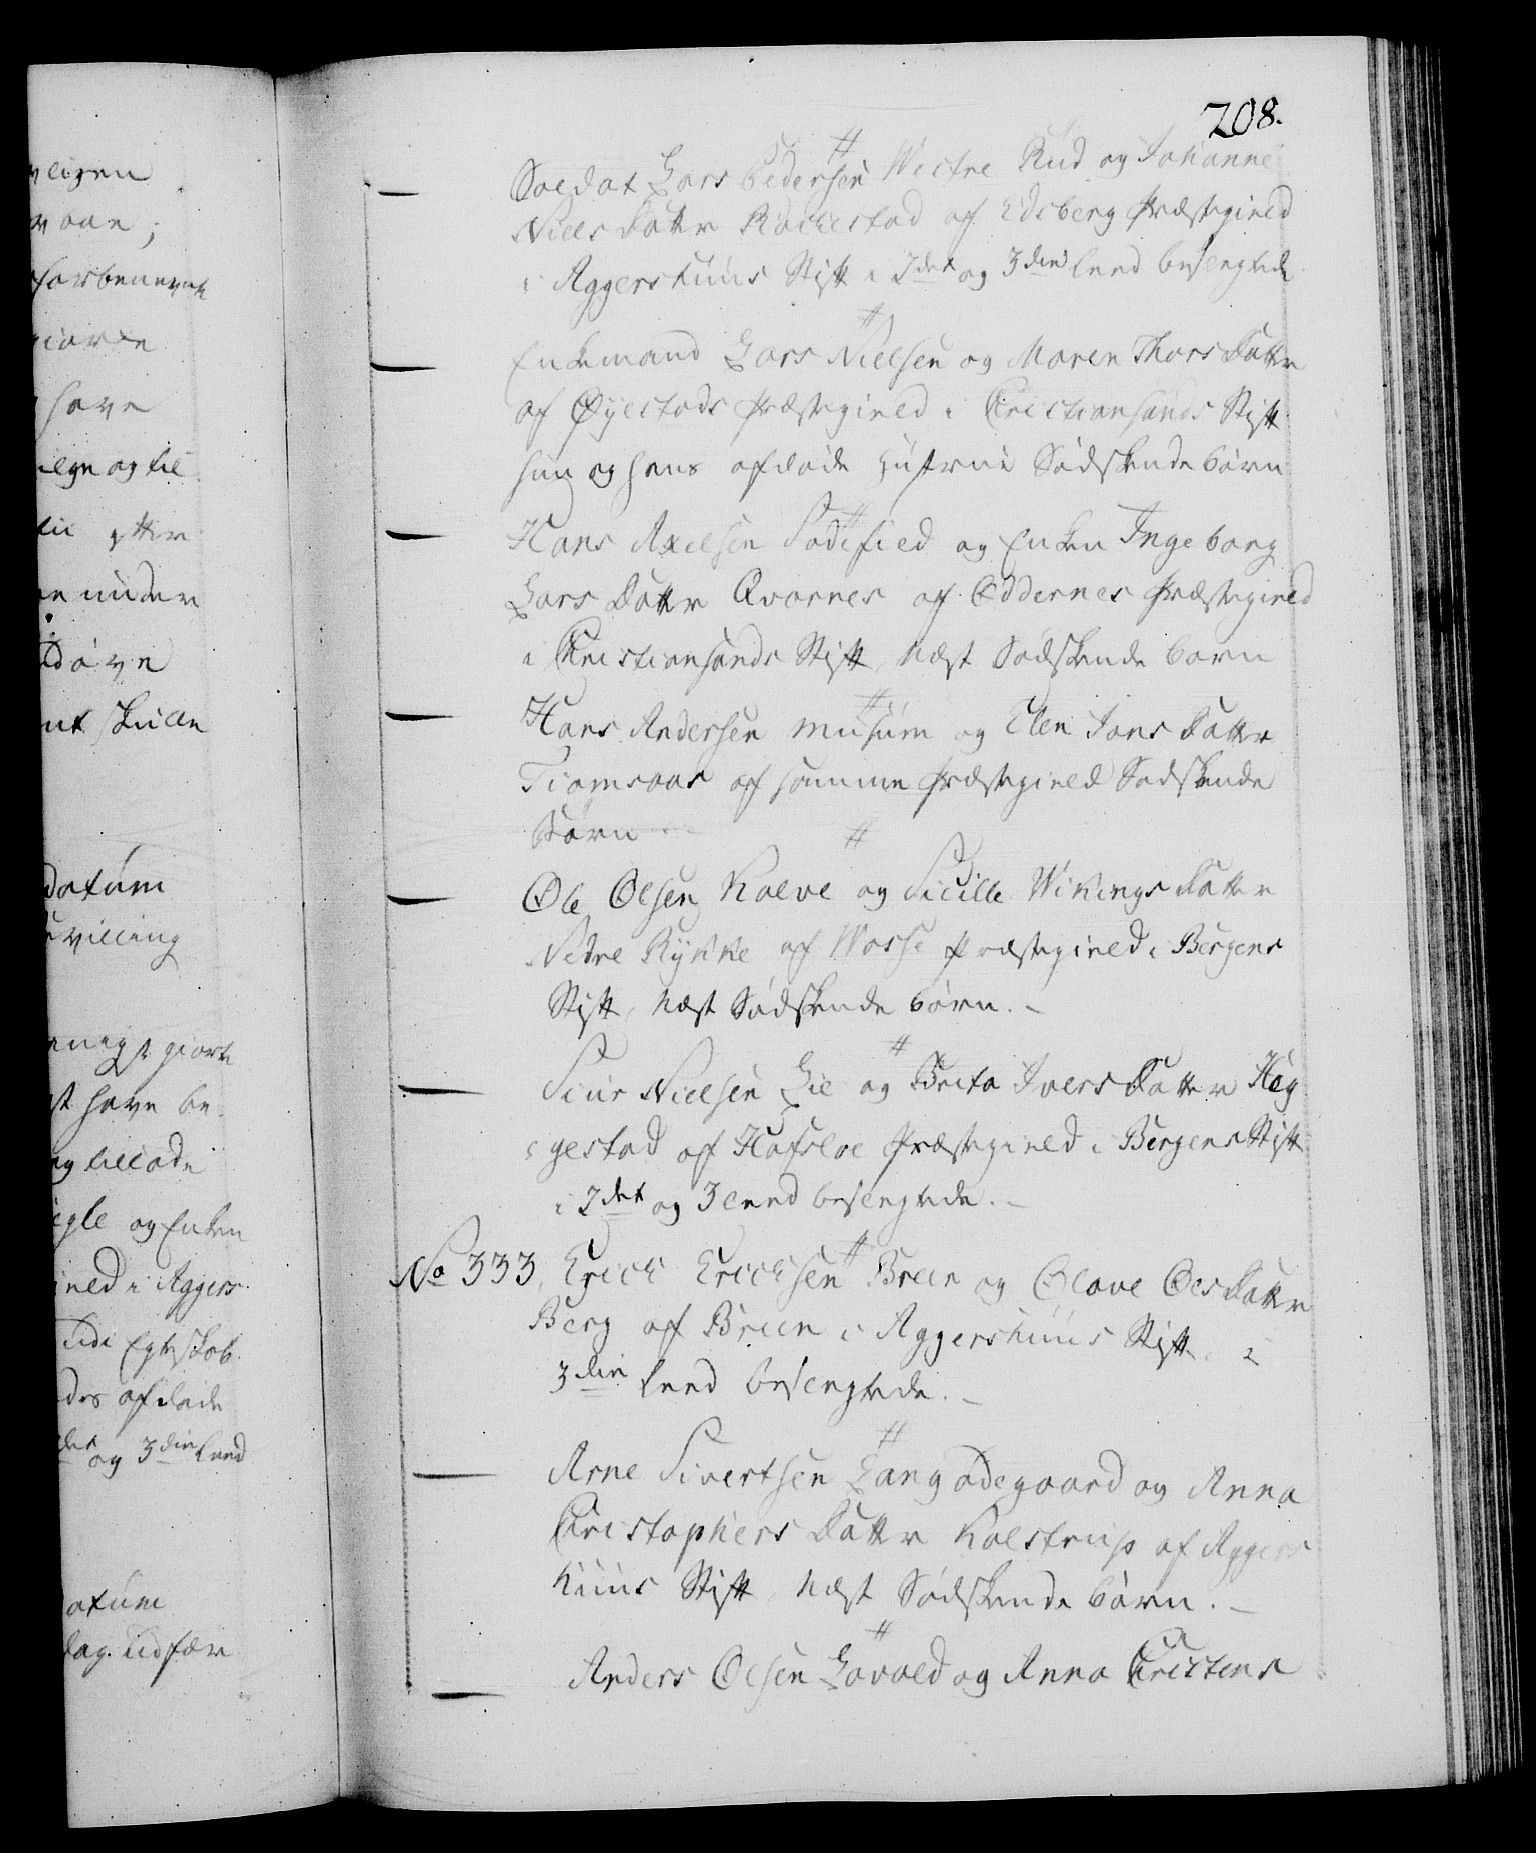 208.
veligen
forbenevnt
giorte
have
til efter
under
døve
skulle
datum
bevilling
giort
have be
og tillade
og Enken
i Aggers
Egteskab
afdøde
det og 3die Leed
datum
udfær
— Soldat Lars Pedersen Westre Rud og Johanne
Niels Datter Rachestad af Edsberg Præstegield
i Aggershuus Stift i 2det og 3die Leed besvogrede
— Enkemand Lars Nielsen og Maren Thors Datter
af Øyestads Præstegield i Christiansands Stift
hun og hans afdøde Hustrue Sødskende børn
— Hans Axelsen Sødefied og Enken Ingeborg
Lars Datter Qvarnes af Oddernes Præstegield
i Christiansands Stift, Næst Sødskende børn
— Hans Andersen Musum og Elen Jons Datter
Tiomsaas af samme Præstegield Sødskende
Børn
— Ole Olsen Kolve og Sicille Wikings Datter
Nedre Rykke af Wosse Præstegield i Bergens
Stift, Næst Sødskende børn.
— Siur Nielsen Lie og Brita Ivers Datter Heg
gestad af Hafsloe Præstegield i Bergens Stift
i 2det og 3 Leed besvogrede.
No 333, Erich Erichsen Breen og Olave Ols Datter
Berg af Breen i Aggershuus Stift, i
3die Leed besvogrede.
— Arne Sivertsen Langødegaard og Anna
Christophers Datter Kolstrup af Aggers
huus Stift, Næst Sødskende børn.
— Anders Olsen Lovald og Anna Christens